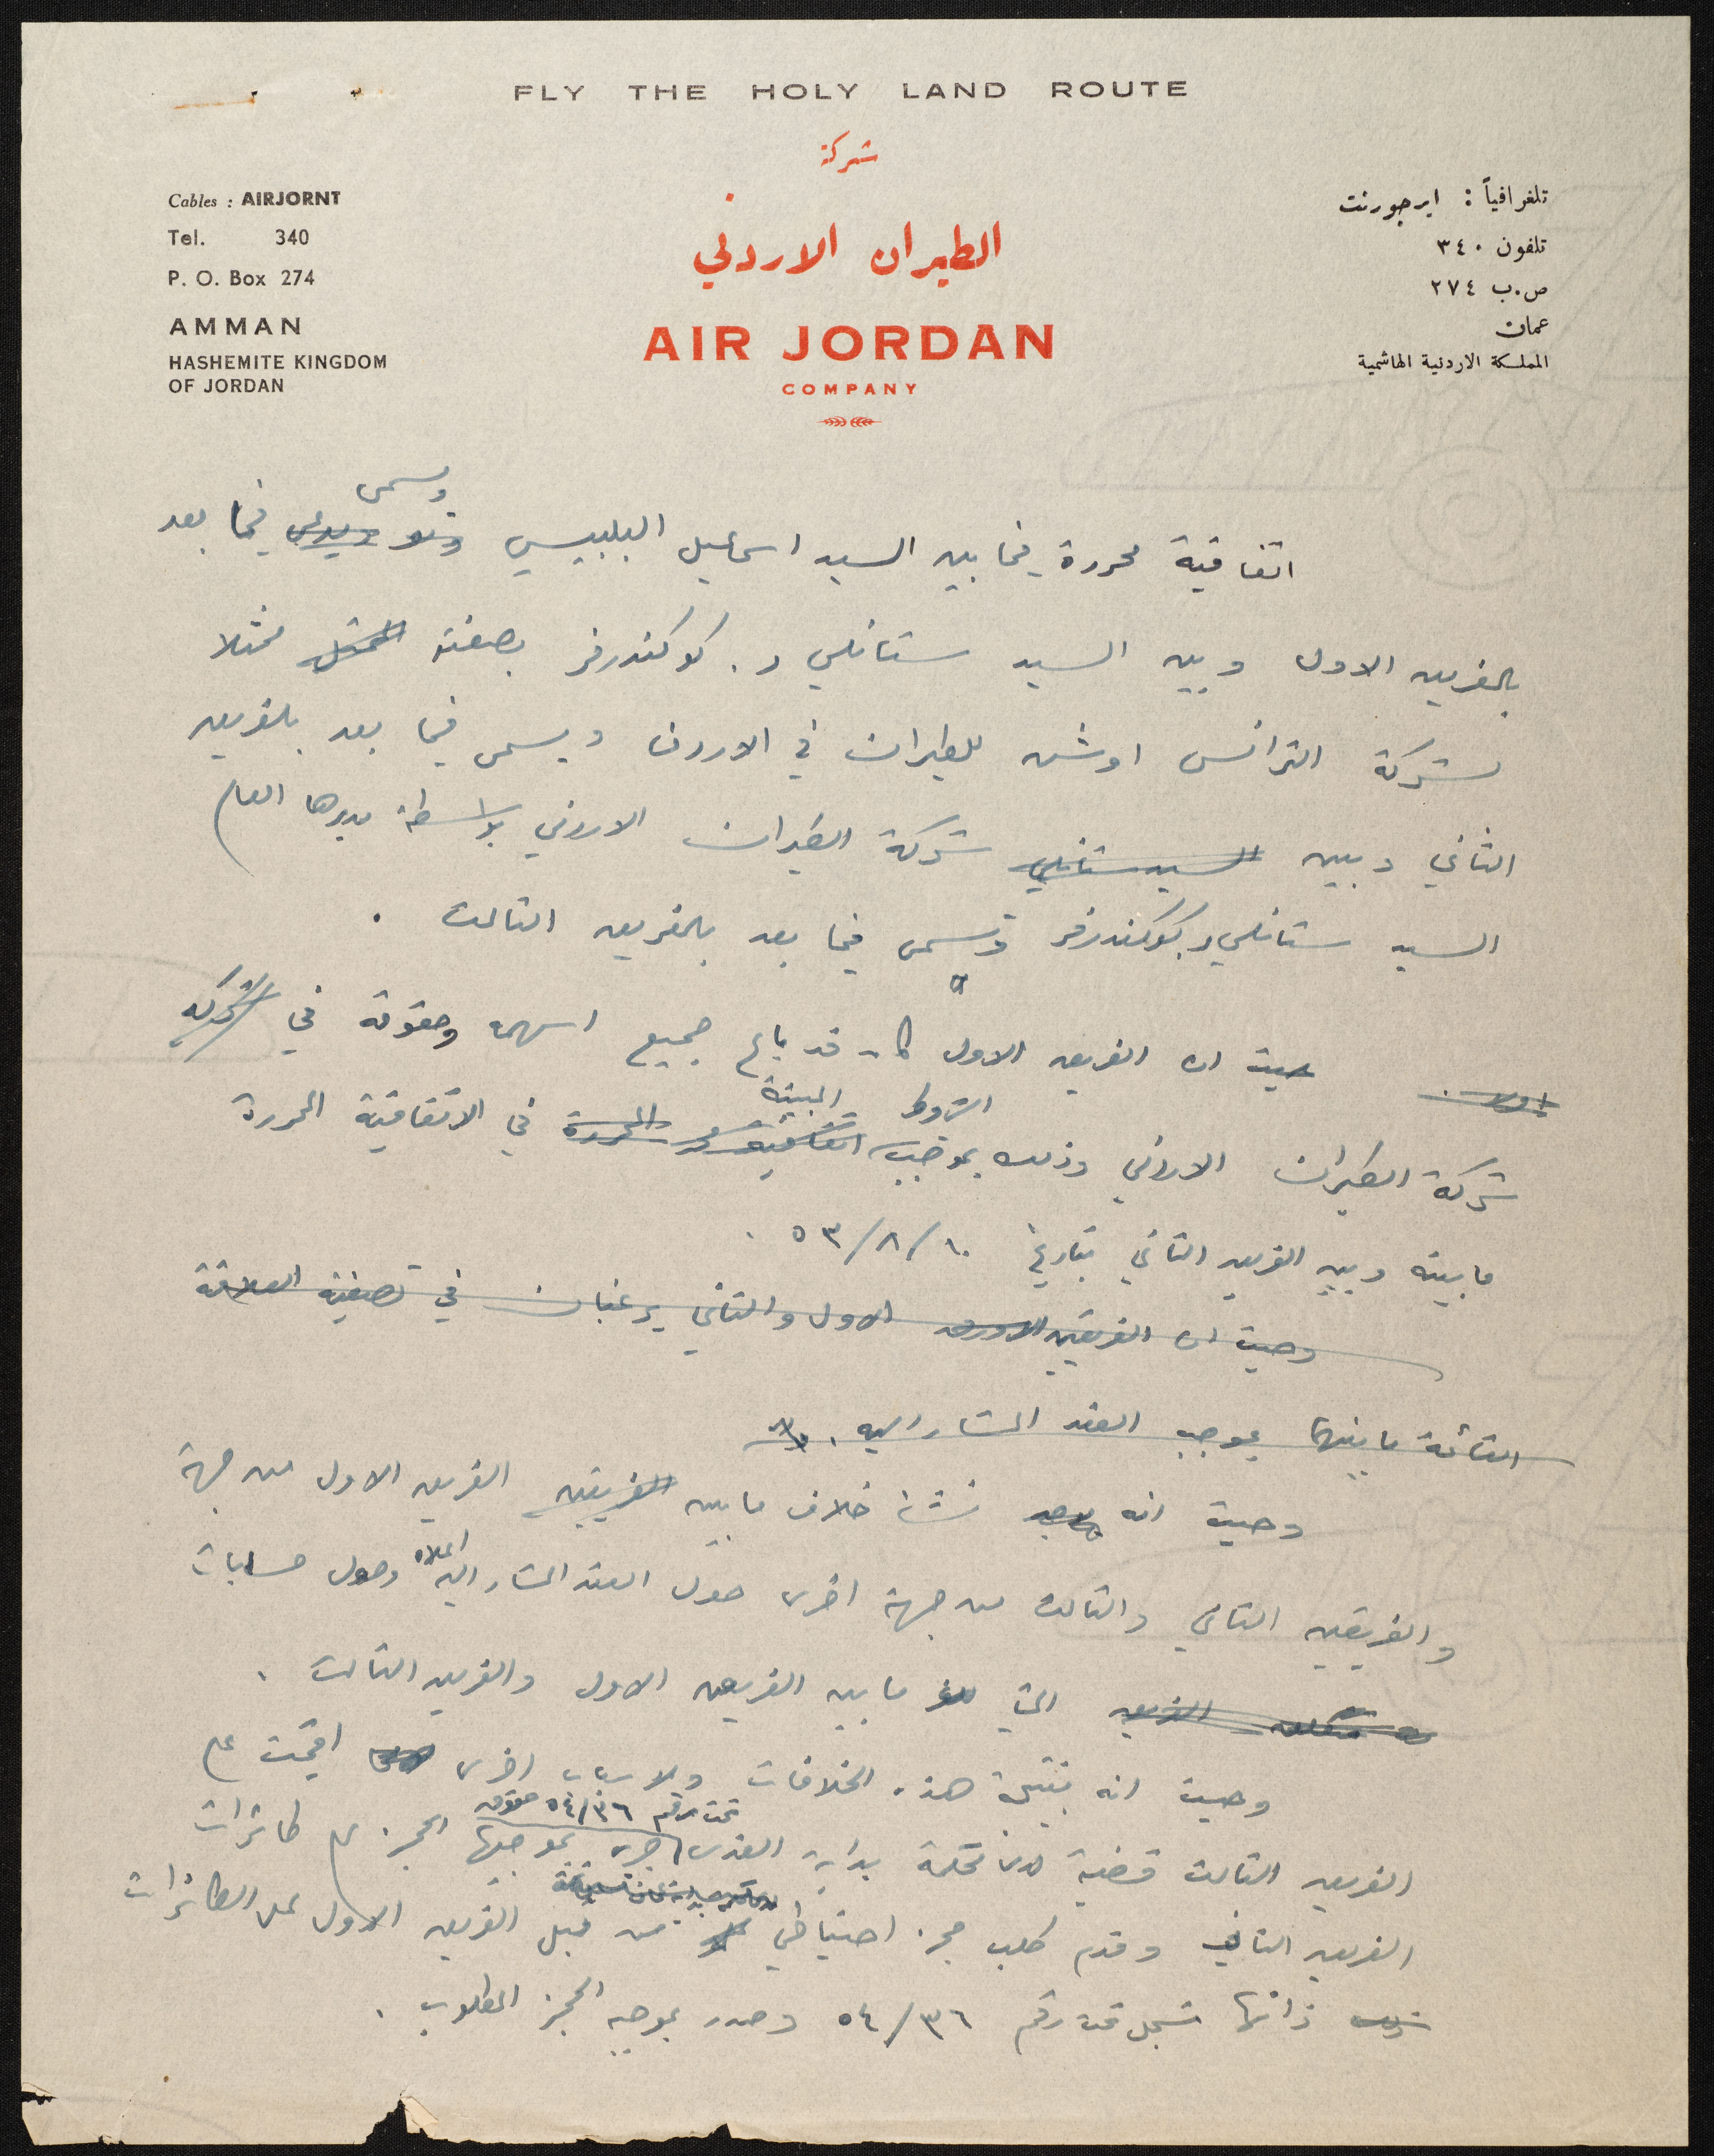 FLY THE HOLY LAND ROUTE
شركة
الطيران الاردني
AIR JORDAN
COMPANY
Cables : AIRJORNT
Tel. 340
P. O. Box 274
AMMAN
HASHEMITE KINGDOM
OF JORDAN
تلغرافياً : ايرجورنت
تلفون ٣٤٠
ص.ب ٢٧٤
عمان
المملكة الاردنية الهاشمية
ويسمى
اتفاقية محررة فيما بين السيد اسماعيل البلبيسي ويدعى فيما بعد
بالفريق الاول وبين السيد ستانلي ر. كوكندرفر بصفته ممثلا
لشركة الترانس اوشن للطيران في الاردن ويسمى فيما بعد بالفريق
الثاني وبين السيد ستانلي شركة الطيران الاردني بواسطة مديرها العام
السيد ستانلي ر كوكندرفر وتسمى فيما بعد بالفريق الثالث .
حيث ان الفريق الاول كان قد باع جميع اسهمه وحقوقه في الشركة
الشروط المبينة
شركة الطيران الاردني وذلك بموجب اتفاقية المحررة في الاتفاقية المحررة
ما بينه وبين الفريق الثاني بتاريخ ١٠/٨/٥٣ .
وحيث ان الفريقين الاول والثاني يرغبان في تصفية العلاقة
القائمة ما بينهما بموجب العقد المشار اليه .
وحيث انه يوجد نشأ خلاف ما بين الفريقين الفريق الاول من جهة
والفريقين الثاني والثالث من جهة اخرى حول العقد المشار اليه اعلاه وحول حسابات
الفريق التي ما بين الفريق الاول والفريق الثالث .
وحيث انه نتيجة هذه الخلافات ولاسباب اخرى اقيمت على
تحت رقم ٣٦/٥٤ حقوق
الفريق الثالث قضية لدى محكمة بداية القدس جرى بموجبها الحجز على طائرات
الفريق الثاني وقدم طلب حجز احتياطي من قبل الفريق الاول على الطائرات
ذاتها تسجل تحت رقم ٣٦/٥٤ وصدر بموجبه الحجز المطلوب .